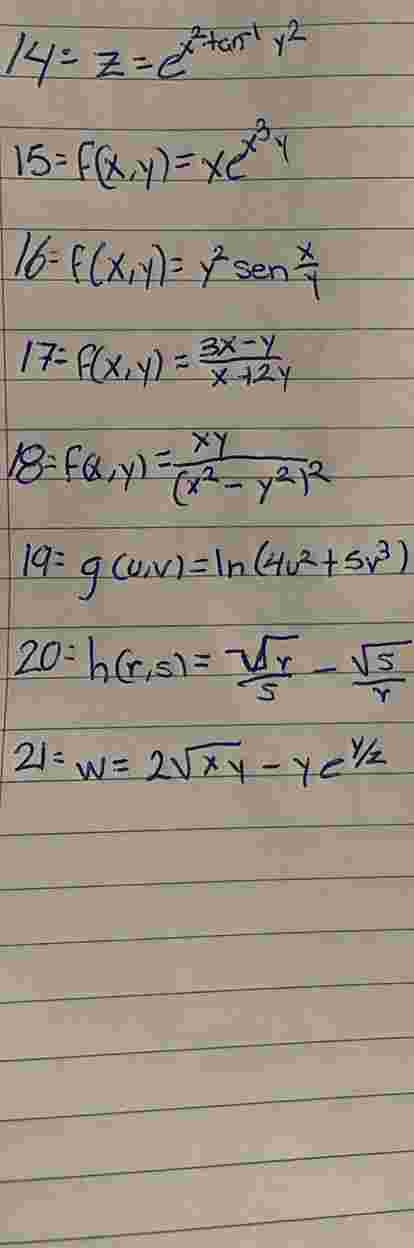 14= z = e^{x² tan⁻¹ y²}
15= f(x,y) = xe^{x³y}
16= f(x,y) = y² sen x/y
17= f(x,y) = 3x-y / x+2y
18= f(x,y) = xy / (x² - y²)²
19= g(u,v) = ln(4u² + 5v³)
20= h(r,s) = √r/s - √s/r
21= w = 2√xy - ye^{y/z}